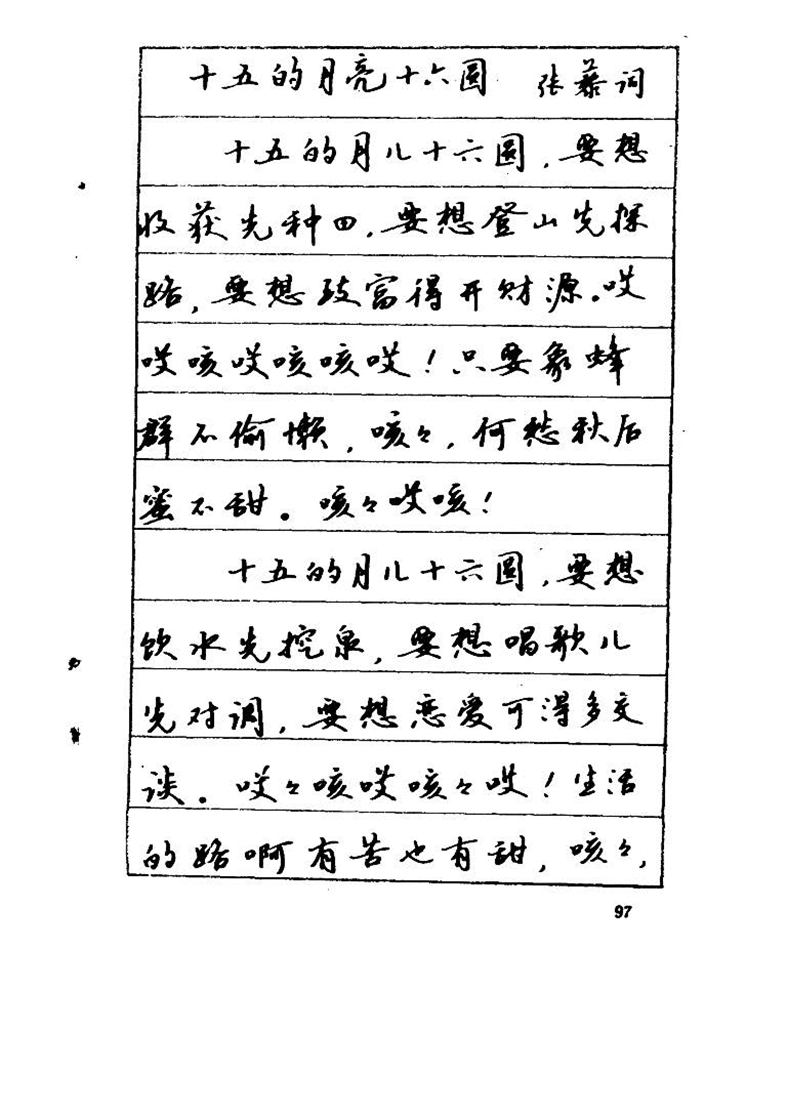 十五的月亮十六圆 张藜词
十五的月儿十六圆，要想
收获先种田，要想登山先探
路，要想致富得开财源。哎
哎咳哎咳咳哎！只要象蜂
群不偷懒，咳々，何愁秋后
蜜不甜。咳々哎咳！
十五的月儿十六圆，要想
饮水先挖泉，要想唱歌儿
先对调，要想恋爱可得多交
谈。哎々咳哎咳々哎！生活
的路啊有苦也有甜，咳々，
97